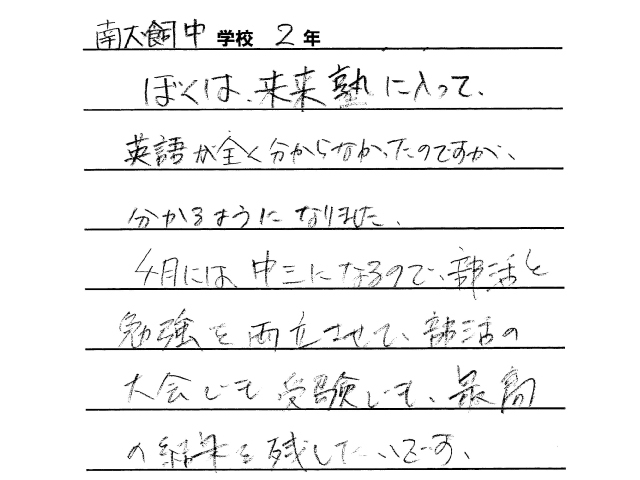 南犬飼中学校 2年
ぼくは、未来塾に入って、
英語が全く分からなかったのですが、
分かるようになりました。
4月には、中三になるので、部活と
勉強を両立させて、部活の
大会でも受験でも、最高
の結果を残したいです。